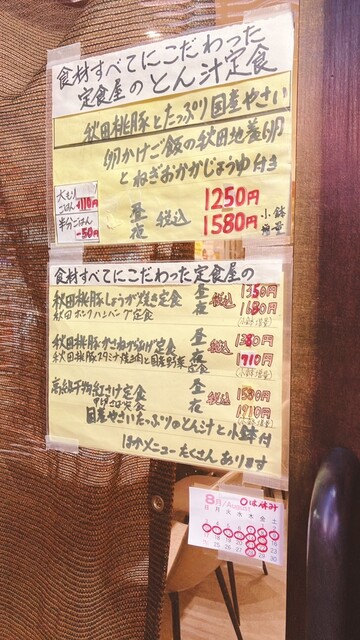 食材すべてにこだわった
定食屋のとん汁定食
秋田桃豚とたっぷり国産やさい
卵かけご飯の秋田地養卵
とねぎおかかじょうゆ付き
大もりごはん+110円
半分ごはん-50円
昼 税込 1250円
夜 1580円 小鉢増量
食材すべてにこだわった定食屋の
秋田桃豚しょうが焼き定食 昼 税込 1350円
秋田ポークハンバーグ定食 夜 1680円
(小鉢増量)
秋田桃豚かさねかつ揚げ定食 昼 税込 1380円
秋田桃豚スタミナ焼き肉と国産野菜定食 夜 1710円
(小鉢増量)
高級干物紅さけ定食 昼 税込 1580円
定食 夜 1910円
(小鉢増量)
国産やさいたっぷりのとん汁と小鉢付
ほかメニューたくさんあります
8月/August ○は休み
日 月 火 水 木 金 土